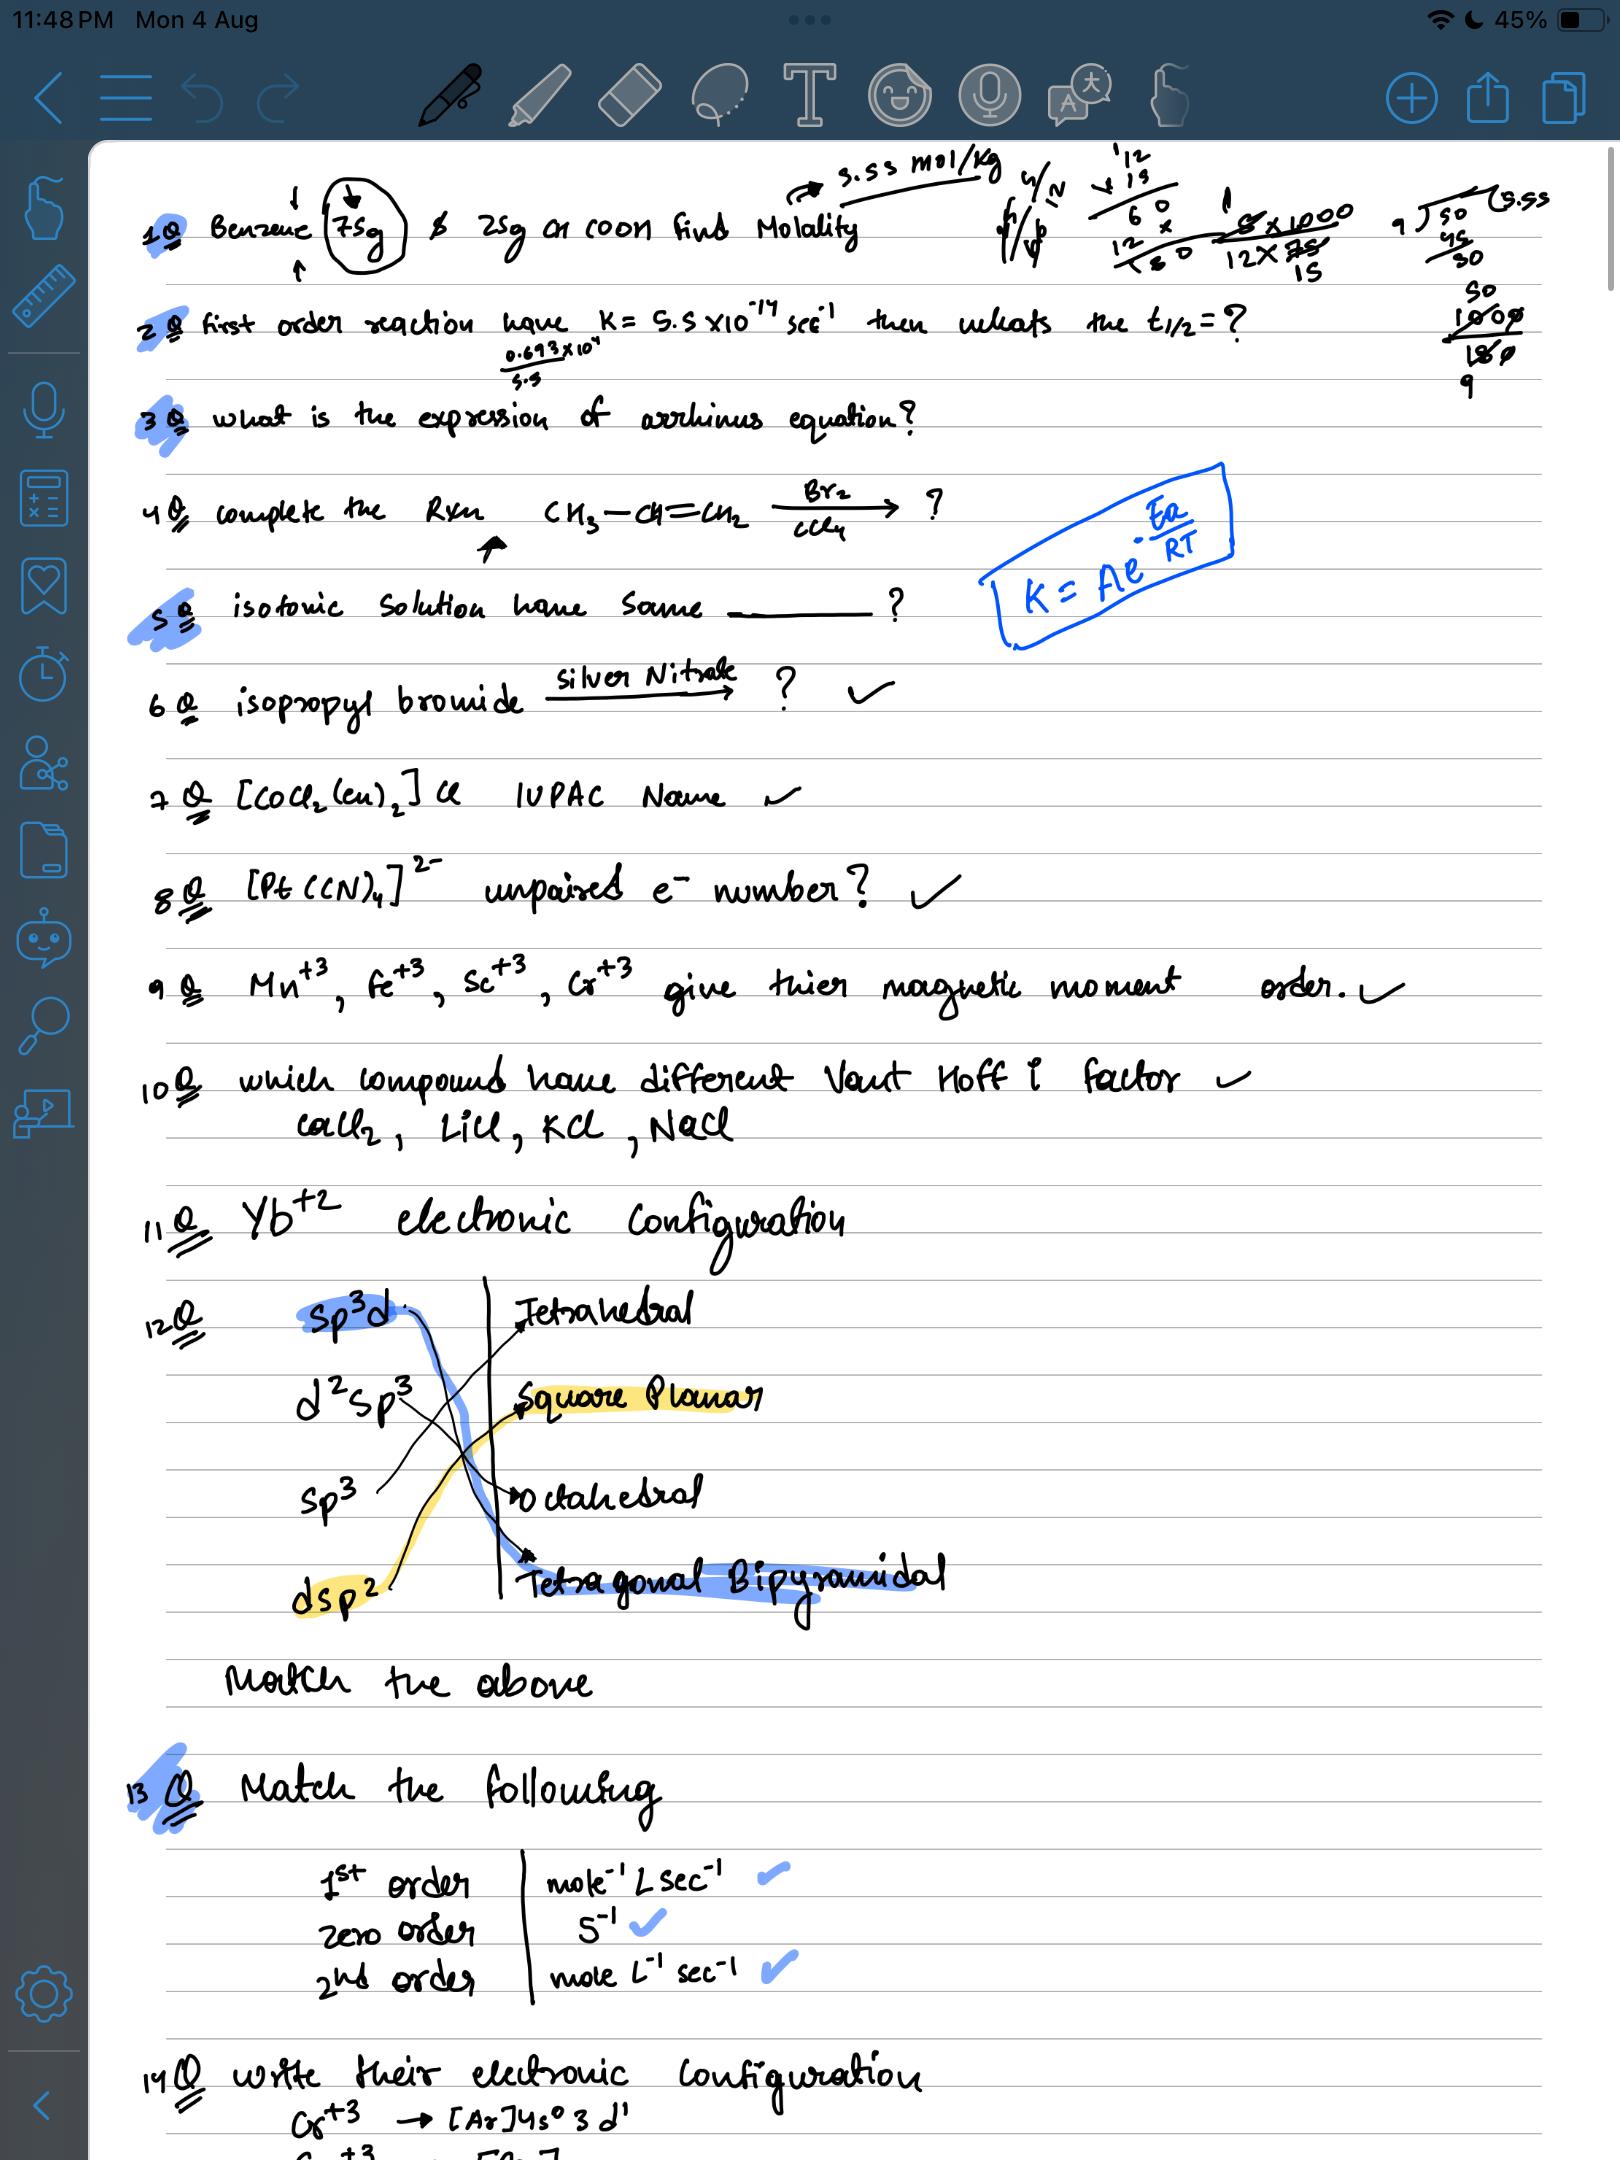 11:48 PM Mon 4 Aug
45%
3.53 mol/kg
1Q Benzene 75g & 25g CH COOH find Molality
12
15
60
180
5 × 1000
12 × 75
15
9 ) 50 ( 5.55
45
50
2Q first order reaction have K = 5.5 × 10⁻¹⁴ sec⁻¹ then whats the t1/2 = ?
0.693 × 10⁴
5.5
50
1000
180
9
3Q what is the expression of arrhinus equation?
4Q complete the Rxn CH₃—CH=CH₂ Br₂ CCl₄ → ?
K = Ae -Ea/RT
5Q isotonic solution have same ______ ?
6Q isopropyl bromide silver Nitrate → ? ✓
7Q [CoCl₂(en)₂]Cl IUPAC Name ✓
8Q [Pt(CN)₄]²⁻ unpaired e⁻ number? ✓
9Q Mn⁺³, Fe⁺³, Sc⁺³, Cr⁺³ give thier magnetic moment order. ✓
10Q which compound have different Vant Hoff i factor ✓
CaCl₂, LiCl, KCl, NaCl
11Q Yb⁺² electronic configuration
12Q sp³d Tetrahedral
d²sp³ Square Planar
sp³ Octahedral
dsp² Tetragonal Bipyramidal
Match the above
13Q Match the following
1st order mole⁻¹ L sec⁻¹ ✓
zero order S⁻¹ ✓
2nd order mole L⁻¹ sec⁻¹ ✓
14Q write their electronic configuration
Cr⁺³ → [Ar]4s⁰3d¹